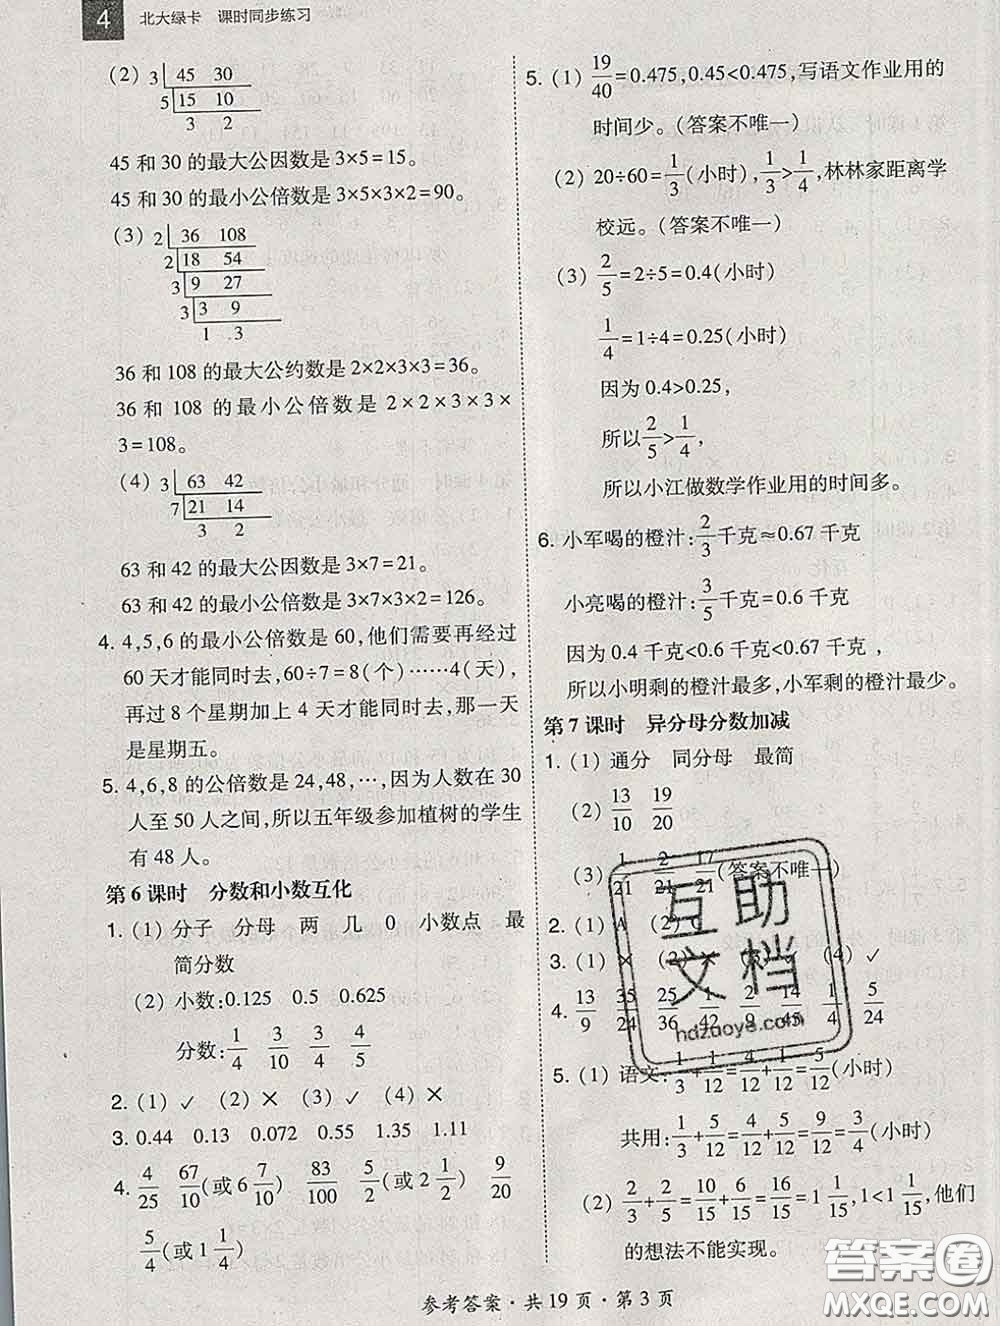 4 北大绿卡 课时同步练习
(2) 3 45 30
5 15 10
3 2
45 和 30 的最大公因数是 3×5=15。
45 和 30 的最小公倍数是 3×5×3×2=90。
(3) 2 36 108
2 18 54
3 9 27
3 3 9
1 3
36 和 108 的最大公约数是 2×2×3×3=36。
36 和 108 的最小公倍数是 2×2×3×3×
3=108。
(4) 3 63 42
7 21 14
3 2
63 和 42 的最大公因数是 3×7=21。
63 和 42 的最小公倍数是 3×7×3×2=126。
4. 4,5,6 的最小公倍数是 60,他们需要再经过
60 天才能同时去,60÷7=8(个)……4(天),
再过 8 个星期加上 4 天才能同时去,那一天
是星期五。
5. 4,6,8 的公倍数是 24,48,…,因为人数在 30
人至 50 人之间,所以五年级参加植树的学生
有 48 人。
第 6 课时 分数和小数互化
1. (1) 分子 分母 两 几 0 小数点 最
简分数
(2) 小数:0.125 0.5 0.625
分数: 1/4 3/10 3/4 4/5
2. (1) ✓ (2) × (3) ✓ (4) ×
3. 0.44 0.13 0.072 0.55 1.35 1.11
4. 4/25 67/10(或 6 7/10) 83/100 5/2(或 2 1/2) 9/20
5/4(或 1 1/4)
5. (1) 19/40=0.475,0.45<0.475,写语文作业用的
时间少。(答案不唯一)
(2) 20÷60=1/3(小时),1/3>1/4,林林家距离学
校远。(答案不唯一)
(3) 2/5=2÷5=0.4(小时)
1/4=1÷4=0.25(小时)
因为 0.4>0.25,
所以 2/5>1/4,
所以小江做数学作业用的时间多。
6. 小军喝的橙汁: 2/3 千克≈0.67 千克
小亮喝的橙汁: 3/5 千克=0.6 千克
因为 0.4 千克<0.6 千克<0.67 千克 ,
所以小明剩的橙汁最多,小军剩的橙汁最少。
第 7 课时 异分母分数加减
1. (1) 通分 同分母 最简
(2) 13/10 19/20
(3) 1/21 2/21 17/21(答案不唯一)
2. (1) A (2) C
3. (1) × (2) × (4) ✓
4. 13/9 35/24 25/36 1/42 2/9 14/45 1/4 5/24
5. (1) 语文: 1/3+1/12=4/12+1/12=5/12(小时)
共用: 1/3+5/12=4/12+5/12=9/12=3/4(小时)
(2) 2/3+2/5=10/15+6/15=16/15=1 1/15,1<1 1/15,他们
的想法不能实现。
互助
文档
hdzuoye.com
答案圈
MXQE.COM
参考答案·共 19 页·第 3 页